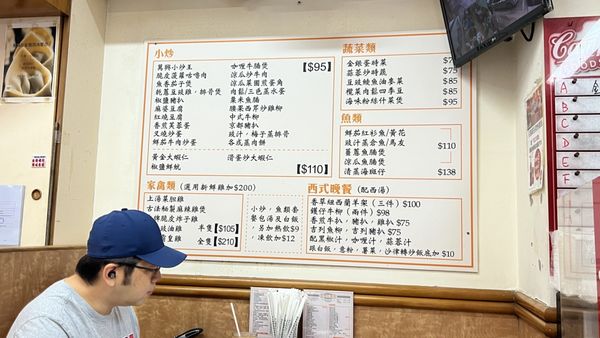 小炒
【$95】
萬興小炒王
脆皮菠蘿咕嚕肉
魚香茄子煲
乾蔥豆豉雞，排骨煲
椒鹽豬扒
麻婆豆腐
紅燒豆腐
香煎芙蓉蛋
叉燒炒蛋
鮮茄牛肉炒蛋
咖喱牛腩煲
涼瓜炒牛肉
涼瓜菜圃煎蛋角
肉鬆/三色蒸水蛋
粟米魚腩
腰果西芹炒雞柳
中式牛柳
京都豬扒
豉汁，梅子蒸排骨
各式蒸肉餅
黃金大蝦仁
椒鹽鮮魷
滑蛋炒大蝦仁
【$110】
蔬菜類
金銀蛋時菜
蒜蓉炒時蔬 $75
豆豉鯪魚油麥菜 $85
欖菜肉鬆四季豆 $85
海味粉絲什菜煲 $95
魚類
鮮茄紅衫魚/黃花
豉汁蒸倉魚/馬友
薑蔥魚腩煲
涼瓜魚腩煲
$110
清蒸海斑仔 $138
家禽類（選用新鮮雞加$200）
上湯菜胆雞
古法秘製麻辣雞煲
脆皮炸子雞
豉油雞
皇雞
半隻【$105】
全隻【$210】
小炒，魚類套
餐包湯及白飯
，另加熱飲$9
，凍飲加$12
西式晚餐（配西湯）
香草紐西蘭羊架（三件）$100
鐵仔牛柳（兩件）$98
香煎牛扒，豬扒，雞扒 $75
吉列魚柳，吉列豬扒 $75
配黑椒汁，咖喱汁，蒜蓉汁
跟白飯，意粉，薯菜，沙律轉炒飯底加 $10
A
B
C
D
E
F